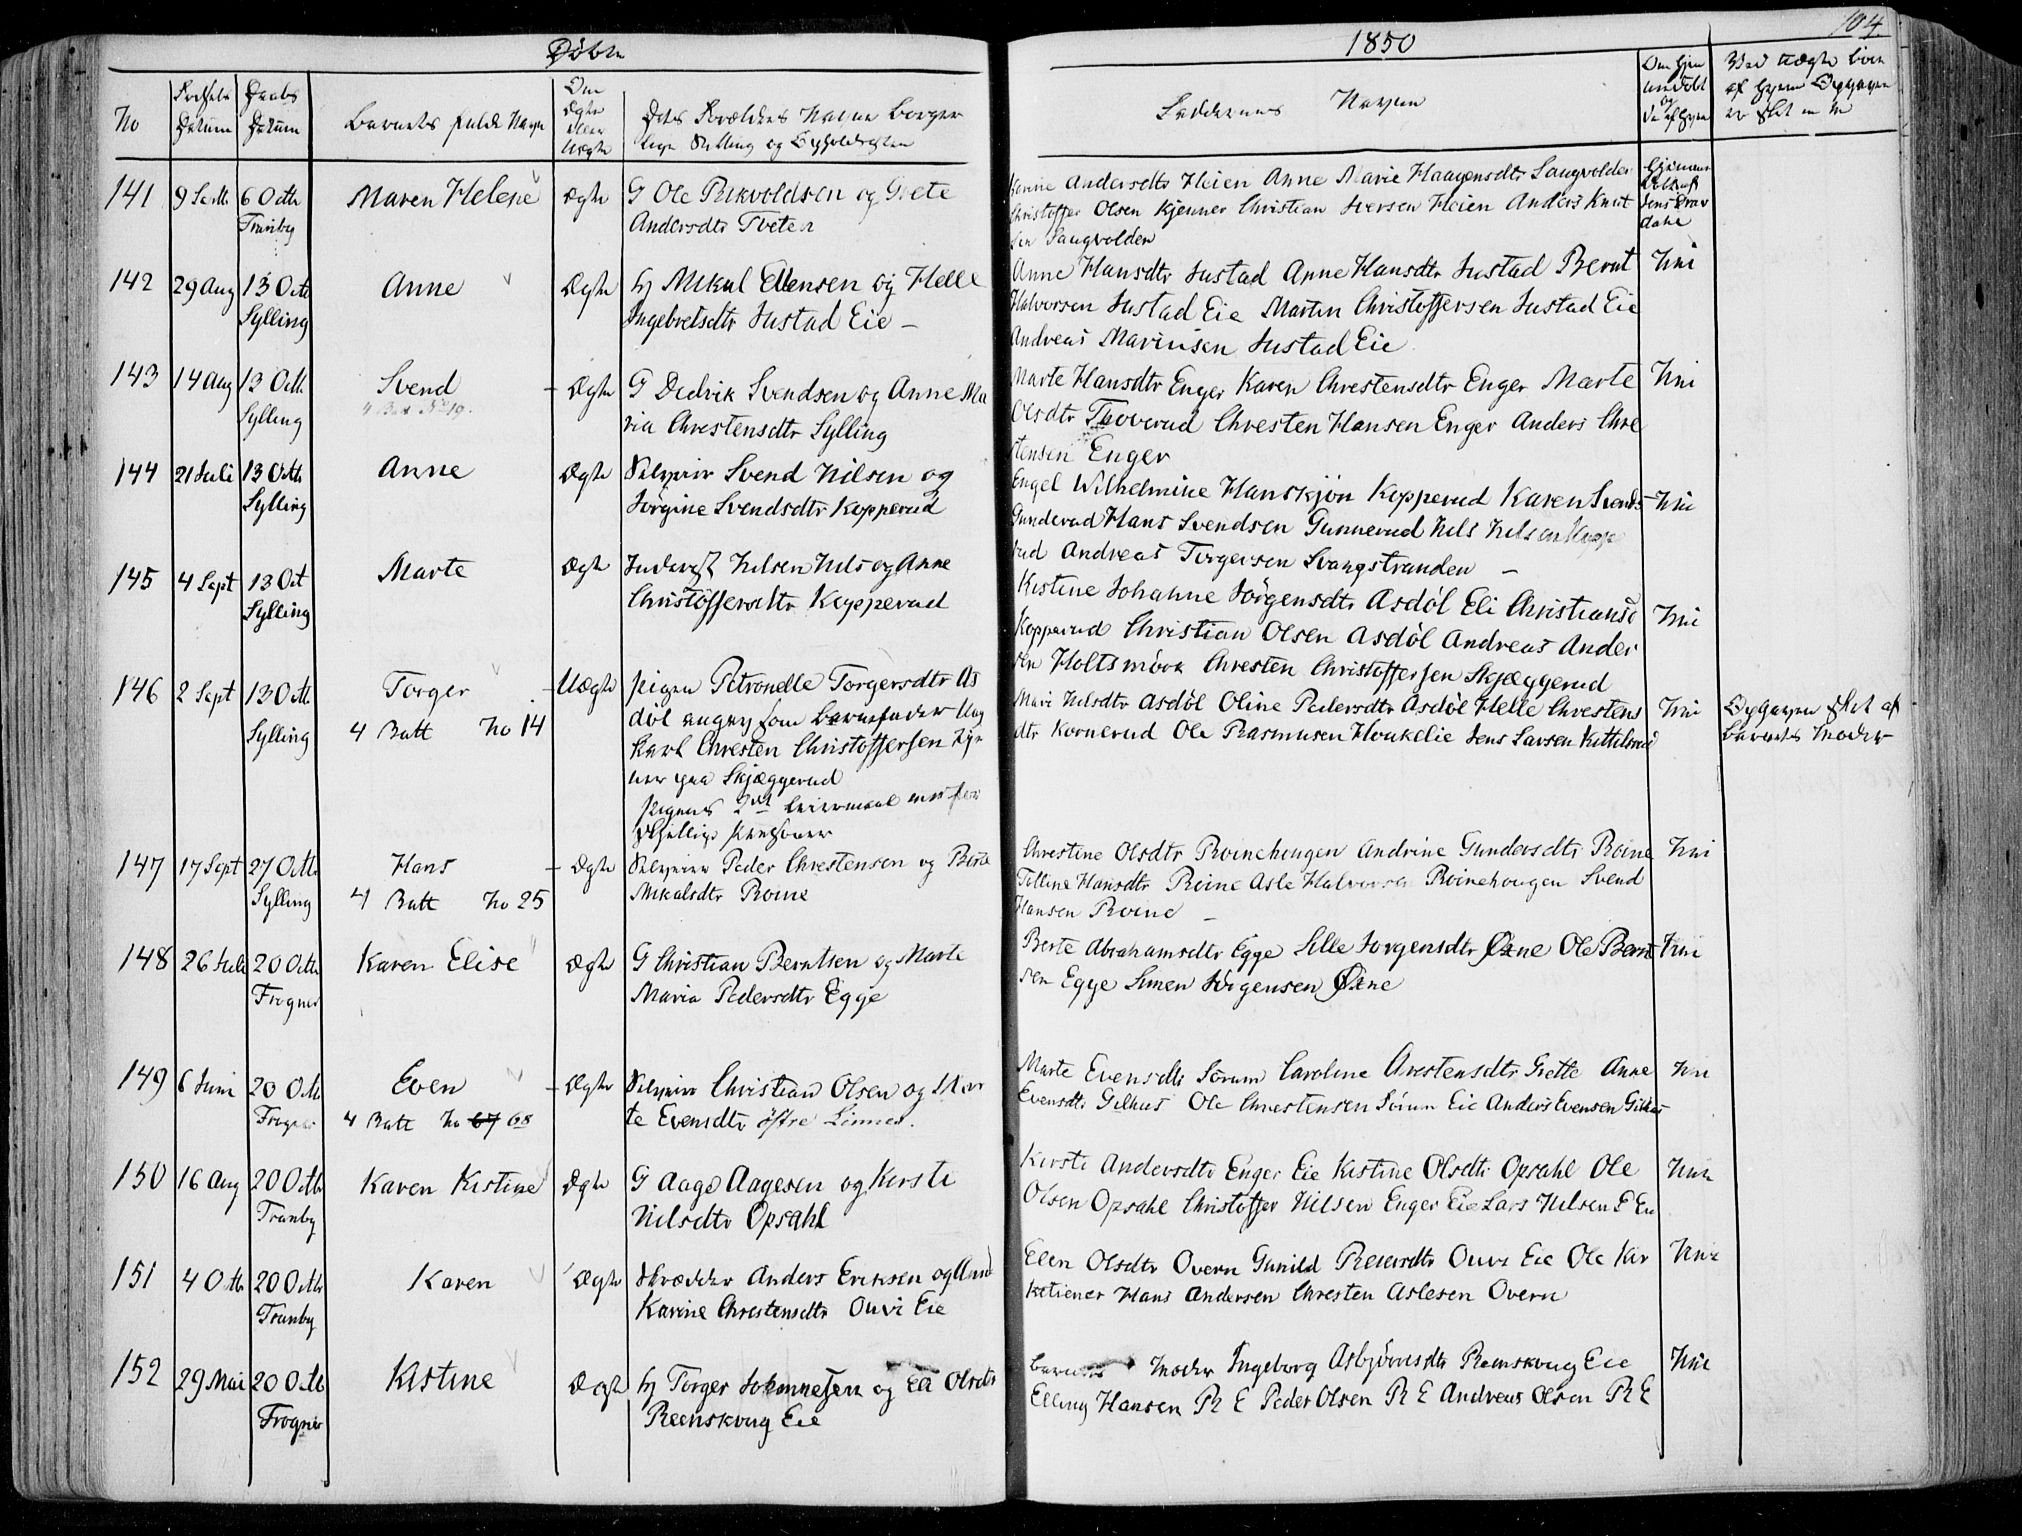 Døbte
1850
104.
No
Fødsels Datum
Daabs Datum
Barnets fulde Navn
Om Ægte eller Uægte
Dets Forældres Navne Borger
lige Stilling og Opholdssted
Faddernes Navne
141
9 Septb
6 Octb
Tranby
Maren Helene
Ægte
G Ole Rikvoldsen og Grete
Andersdtr Tveten
Andersdtr Heien Anne Marie Haagensdtr Saugvolden
Christoffer Olsen Kjenner Christian Iversen Heien Anders Knut
sen Saugvolden
142
29 Aug
13 Octb
Sylling
Anne
Ægte
Hj Mikal Ellensen og Helle
Ingebretsdtr Justad Eie –
Anne Hansdtr Justad Anne Hansdtr Justad Bernt
Halvorsen Justad Eie Martin Christoffersen Justad Eie
Andreas Marinsen Justad Eie
Nei
143
14 Aug
13 Octb
Sylling
Svend
4 Bat No 19.
Ægte
G Dedrik Svendsen og Anne Ma
ria Chrestensdtr Sylling
Marte Hansdtr Enger Karen Chrestensdtr Enger Marte
Olsdtr Thoverud Chresten Hansen Enger Anders Chre
stensen Enger
Nei
144
21 Juli
13 Octb
Sylling
Anne
Ægte
Selveier Svend Nilsen og
Jørgine Svendsdtr Kopperud
Engel Wilhelmine Hanskjøn Kopperud Karen Svends
Gunderud Hans Svendsen Gunnerud Nils Nilsen Koppe
rud Andreas Torgersen Svangstranden –
Nei
145
4 Sept
13 Oct
Sylling
Marte
Ægte
Inderst Nilsen Nils og Anne
Christoffersdtr Kopperud
Kistine Johanne Jørgensdtr Asdøl Eli Christiansd
Kopperud Christian Olsen Asdøl Andreas Ander
sen Holtsmork Chresten Christoffersen Skjæggerud
Nei
146
2 Sept
13 Octb
Sylling
Torger
4 Batt No 14
Uægte
Pigen Petronelle Torgersdtr As
døl angav som Barnefader Ung
karl Chresten Christoffersen Tje
ner paa Skjæggerud
Pigens 2det Leiermaal med for
skjellige Personer
Mari Nilsdtr Asdøl Oline Pedersdtr Asdøl Helle Chrestens
dtr Kornerud Ole Rasmusen Houkelie Jens Larsen Kittilsrud
Nei
Opgaven skeet af
Barnets Moder
147
17 Sept
27 Octb
Sylling
Hans
4 Batt No 25
Ægte
Selveier Peder Chrestensen og Berte
Mikalsdtr Roine
Chrestine Olsdtr Roinehougen Andrine Gundersdtr Roine
Tolline Hansdtr Roine Asle Halvorsen Roinehougen Svend
Hansen Roine –
Nei
148
26 Juli
20 Octb
Frogner
Karen Elise
Ægte
G Christian Berntsen og Marte
Maria Pedersdtr Egge
Berte Abrahamsdtr Egge Sille Jørgensdtr Øxne Ole Bernt
sen Egge Simen Jørgensen Øxne
Nei
149
6 Juni
20 Octb
Frogner
Even
4 Batt No 67 68
Ægte
Selveier Christian Olsen og Mar
te Evensdtr østre Linnes.
Marte Evensdtr Sørum Caroline Chrestensdtr Grette Anne
Evensdtr Gilhus Ole Chrestensen Sørum Eie Anders Evensen Gilhus
Nei
150
16 Aug
20 Octb
Tranby
Karen Kistine
Ægte
G Aage Aagesen og Kersti
Nilsdtr Opsahl
Kersti Andersdtr Enger Eie Kistine Olsdtr Opsahl Ole
Olsen Opsahl Christoffer Nilsen Enger Eie Lars Nilsen E Eie
Nei
151
4 Octb
20 Octb
Tranby
Karen
Ægte
Skrædder Anders Eriksen og Anne
Karine Chrestensdtr Ouvi Eie
Elen Olsdtr Overn Gunild Reiersdtr Ouvi Eie Ole Kir
ketiener Hans Andersen Chresten Aslesen Overn
Nei
152
29 Mai
20 Octb
Frogner
Kistine
Ægte
Hj Torger Johannesen og Eli Olsdtr
Reenskoug Eie
Barnets Moder Ingeborg Asbjørnsdtr Reenskoug Eie
Elling Hansen R E Peder Olsen R E Andreas Olsen R E
Nei